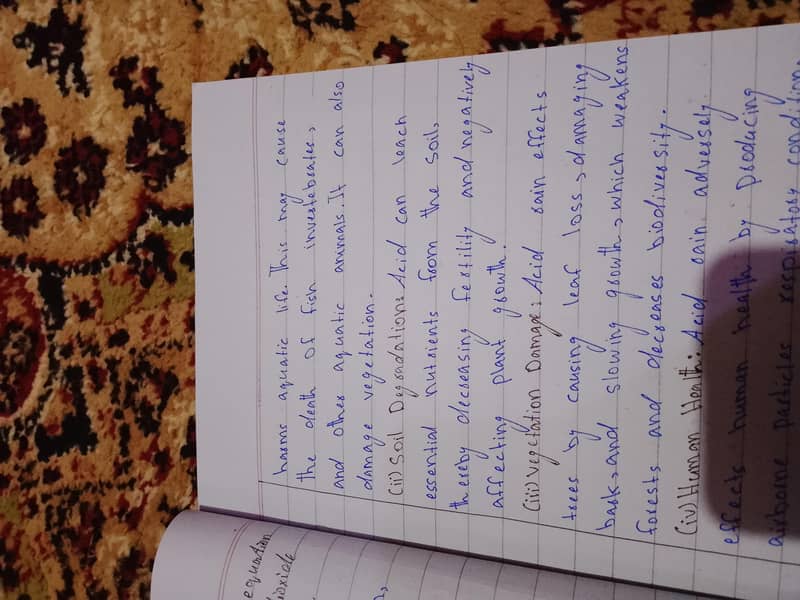 equation
dioxide
harms aquatic life. This may cause
the death of fish invertebrates,
and other aquatic animals. It can also
damage vegetation.
(ii) Soil Degradation: Acid can leach
essential nutrients from the soil,
thereby decreasing fertility and negatively
affecting plant growth.
(iii) Vegetation Damage: Acid rain effects
trees by causing leaf loss, damaging
bark, and slowing growth, which weakens
forests and decreases biodiversity.
(iv) Human Health: Acid rain adversely
effects human health by producing
airborne particles respiratory condition.